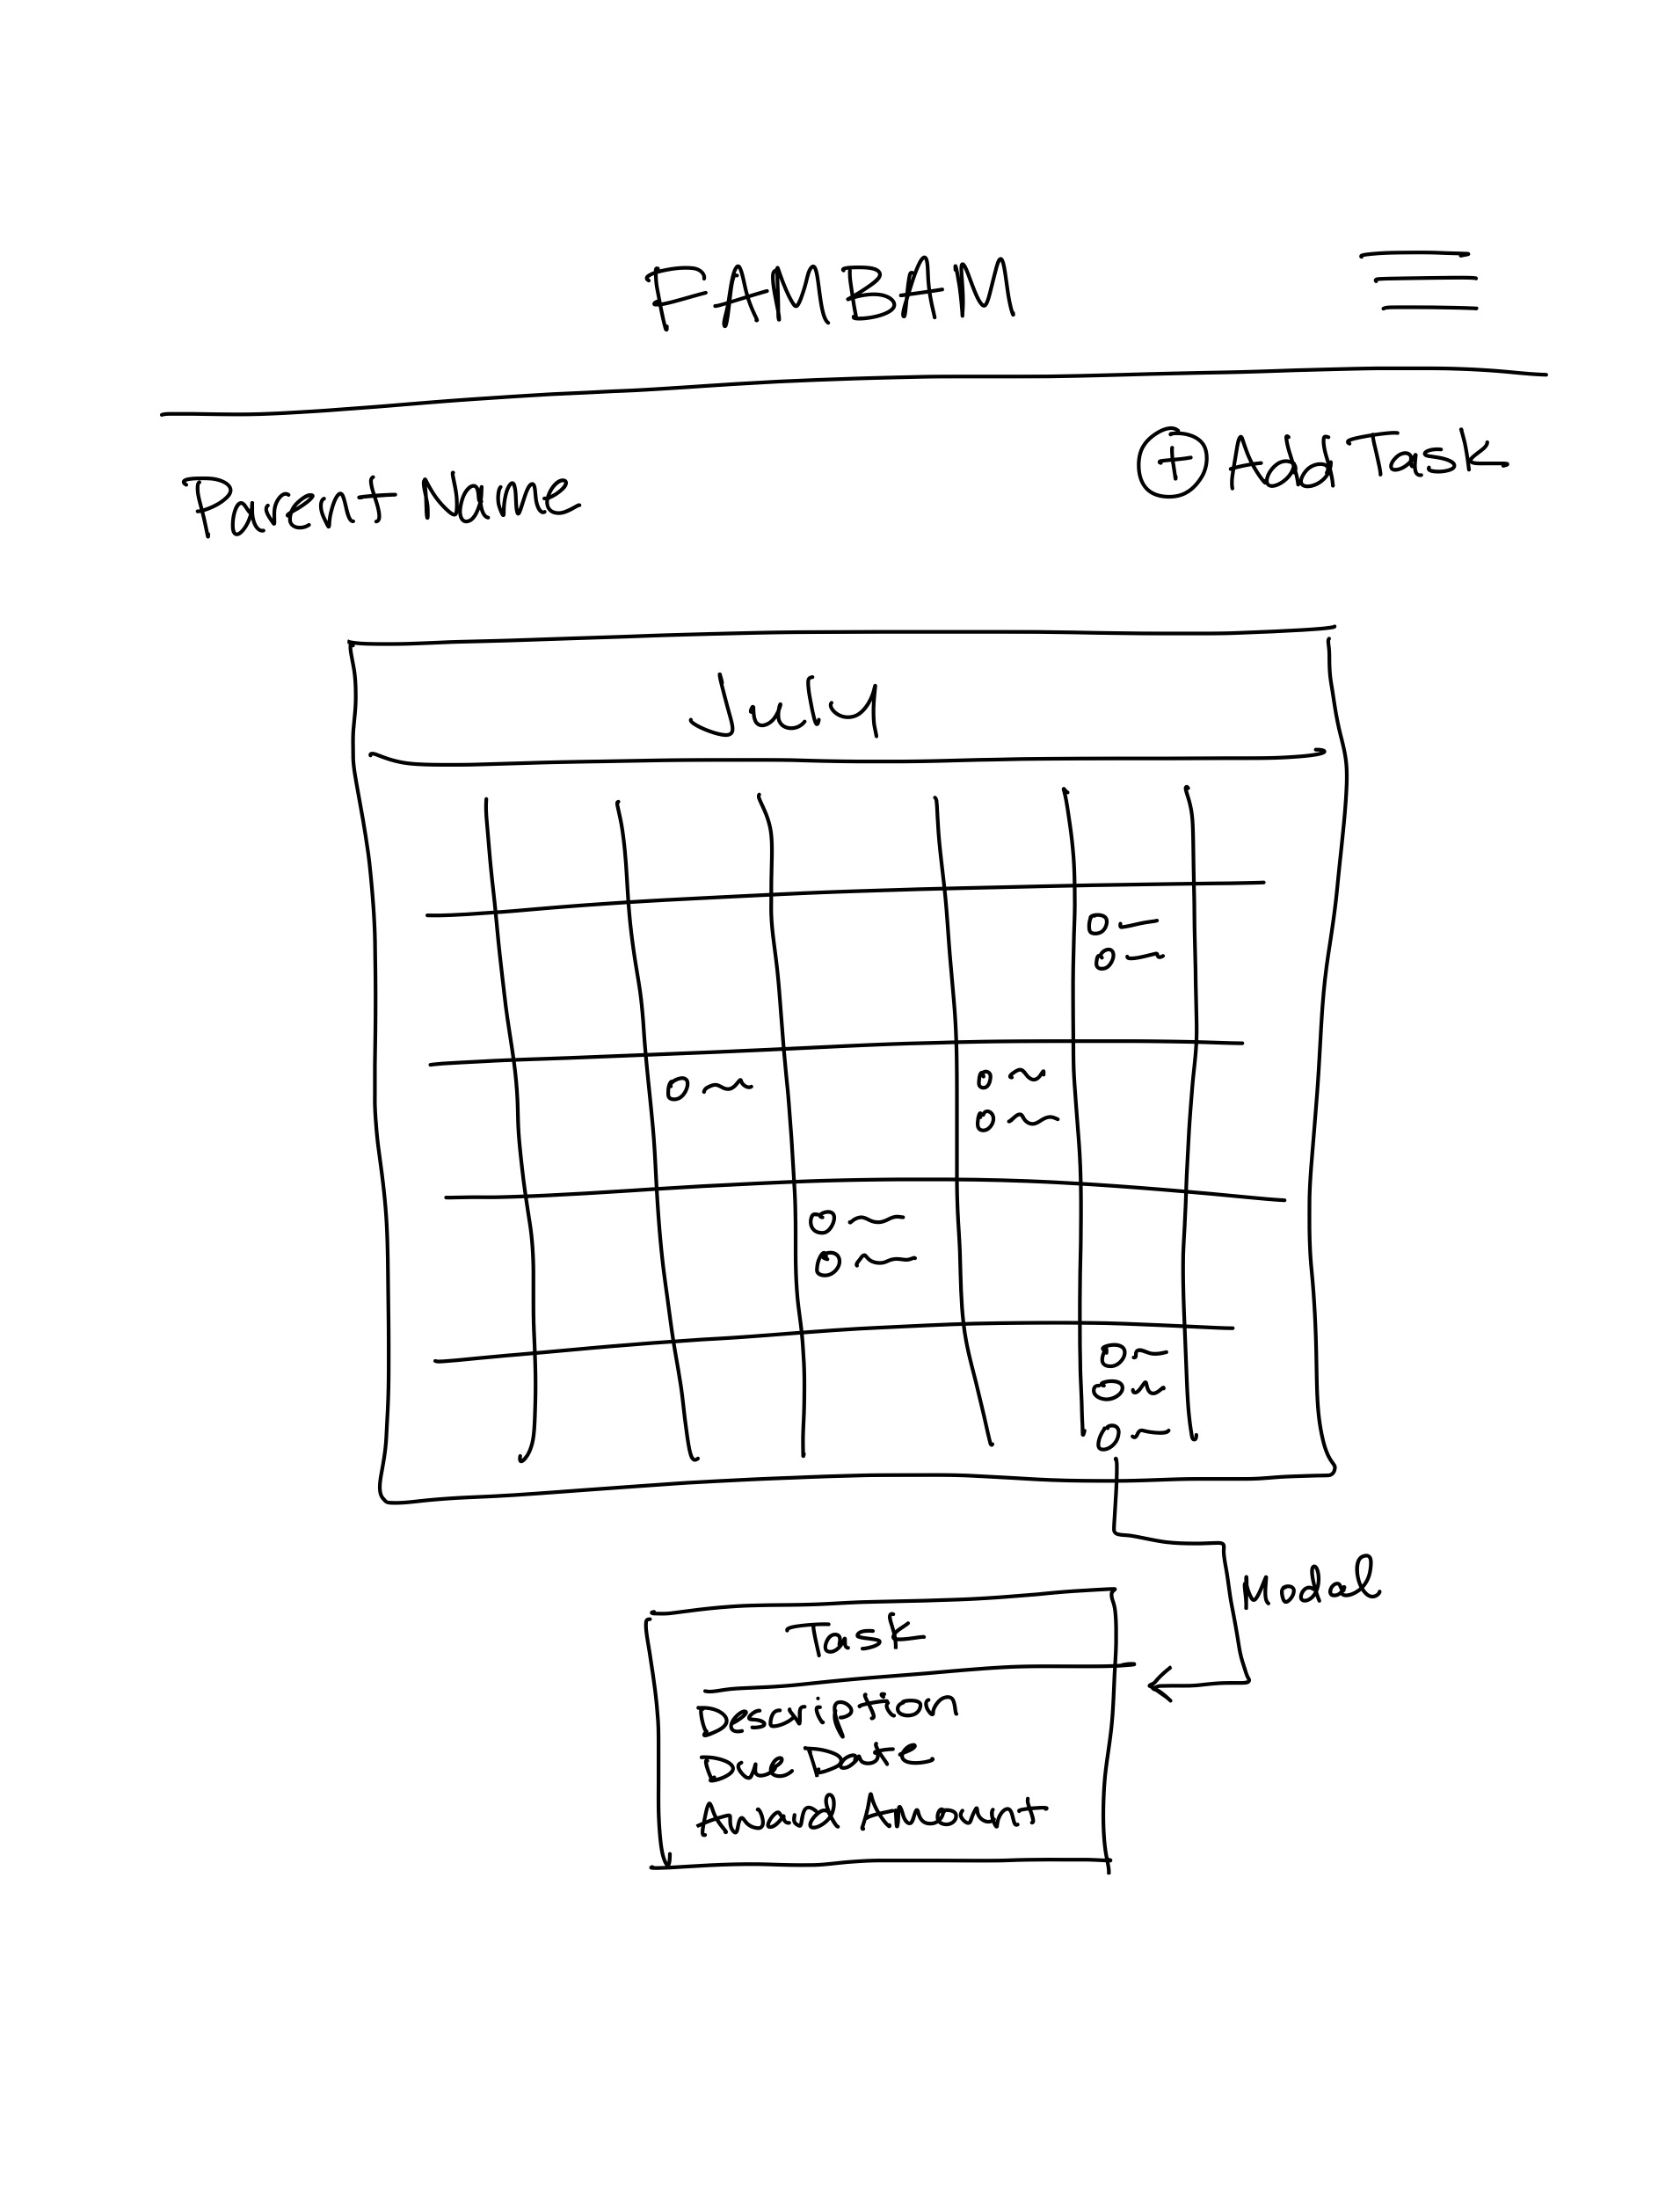 FAMBAM
Parent Name
Add Task
July
Modal
Task
Description
Due Date
Award Amount